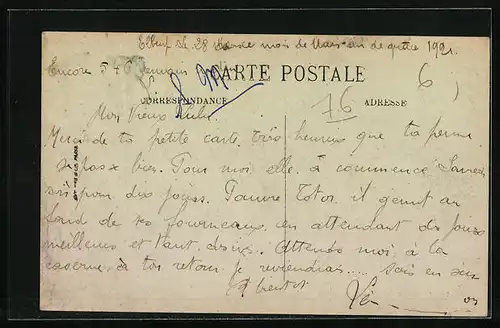 Elbeuf le 28 mois de Mars an de guerre 192
Encore 5 + 6
CARTE POSTALE
6
76
CORRESPONDANCE
ADRESSE
Mon Vieux Lulu
Merci de ta petite carte. Très heureux que ta perme
se passe bien. Pour moi elle à commencé Samedi
soir pour dix jours. Pauvre Totor il gémit au
fond de ses fourneaux, en attendant des jours
meilleurs et tant désirés. Attends moi à la
caserne à ton retour je reviendrais.... Sois en sûr
A bientôt